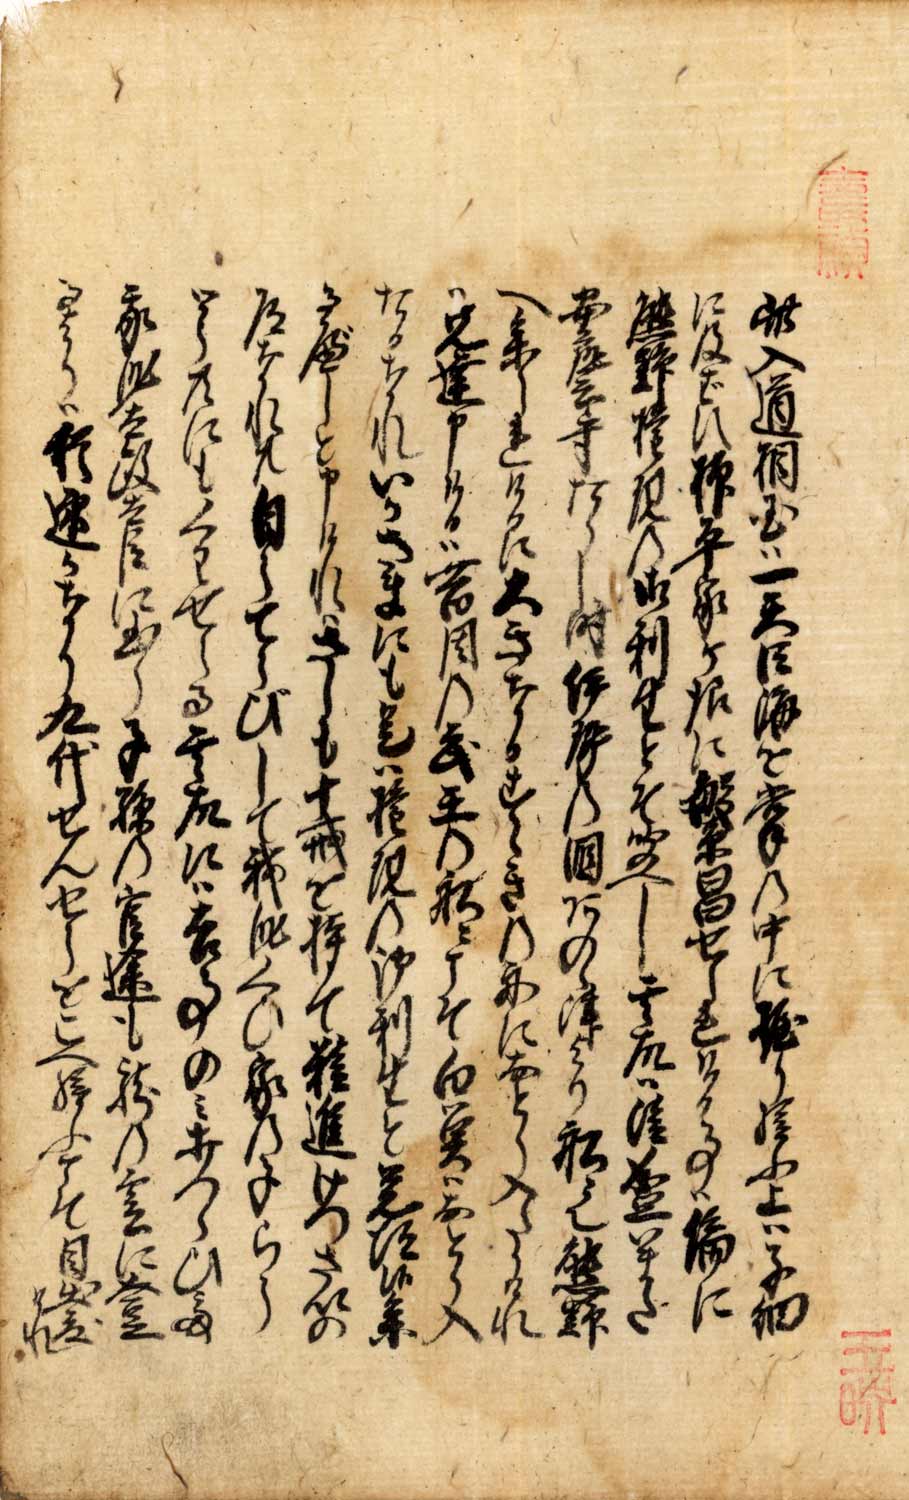 此入道相国ハ一天四海を掌の中に握り給ふ上ハ子細
に及はす抑平家か様に繁昌せられける事ハ偏に
熊野権現の御利生とそ覚へし其故ハ清盛いまた
安芸守たりし時伊勢の国あのゝ津より船にて熊野
へ参られけるに大きなるすゝきの船におとり入たりけれ
ハ先達申けるハ昔周の武王の船にこそ白魚ハおとり入
たるなれいかさまにも是ハ権現の御利生と覚候参
るへしと申けれハさしも十戒を持て精進けつさいの
道なれ共自らてうびして我身くひ家の子らう
とう共にもくわせらる其故に ハ吉事のミうちつゝひて
我身太政大臣に至り子孫の官途も龍の雲に登
るよりハ猶速かなり九代せんせうをこへ給ふこそ目出
けれ